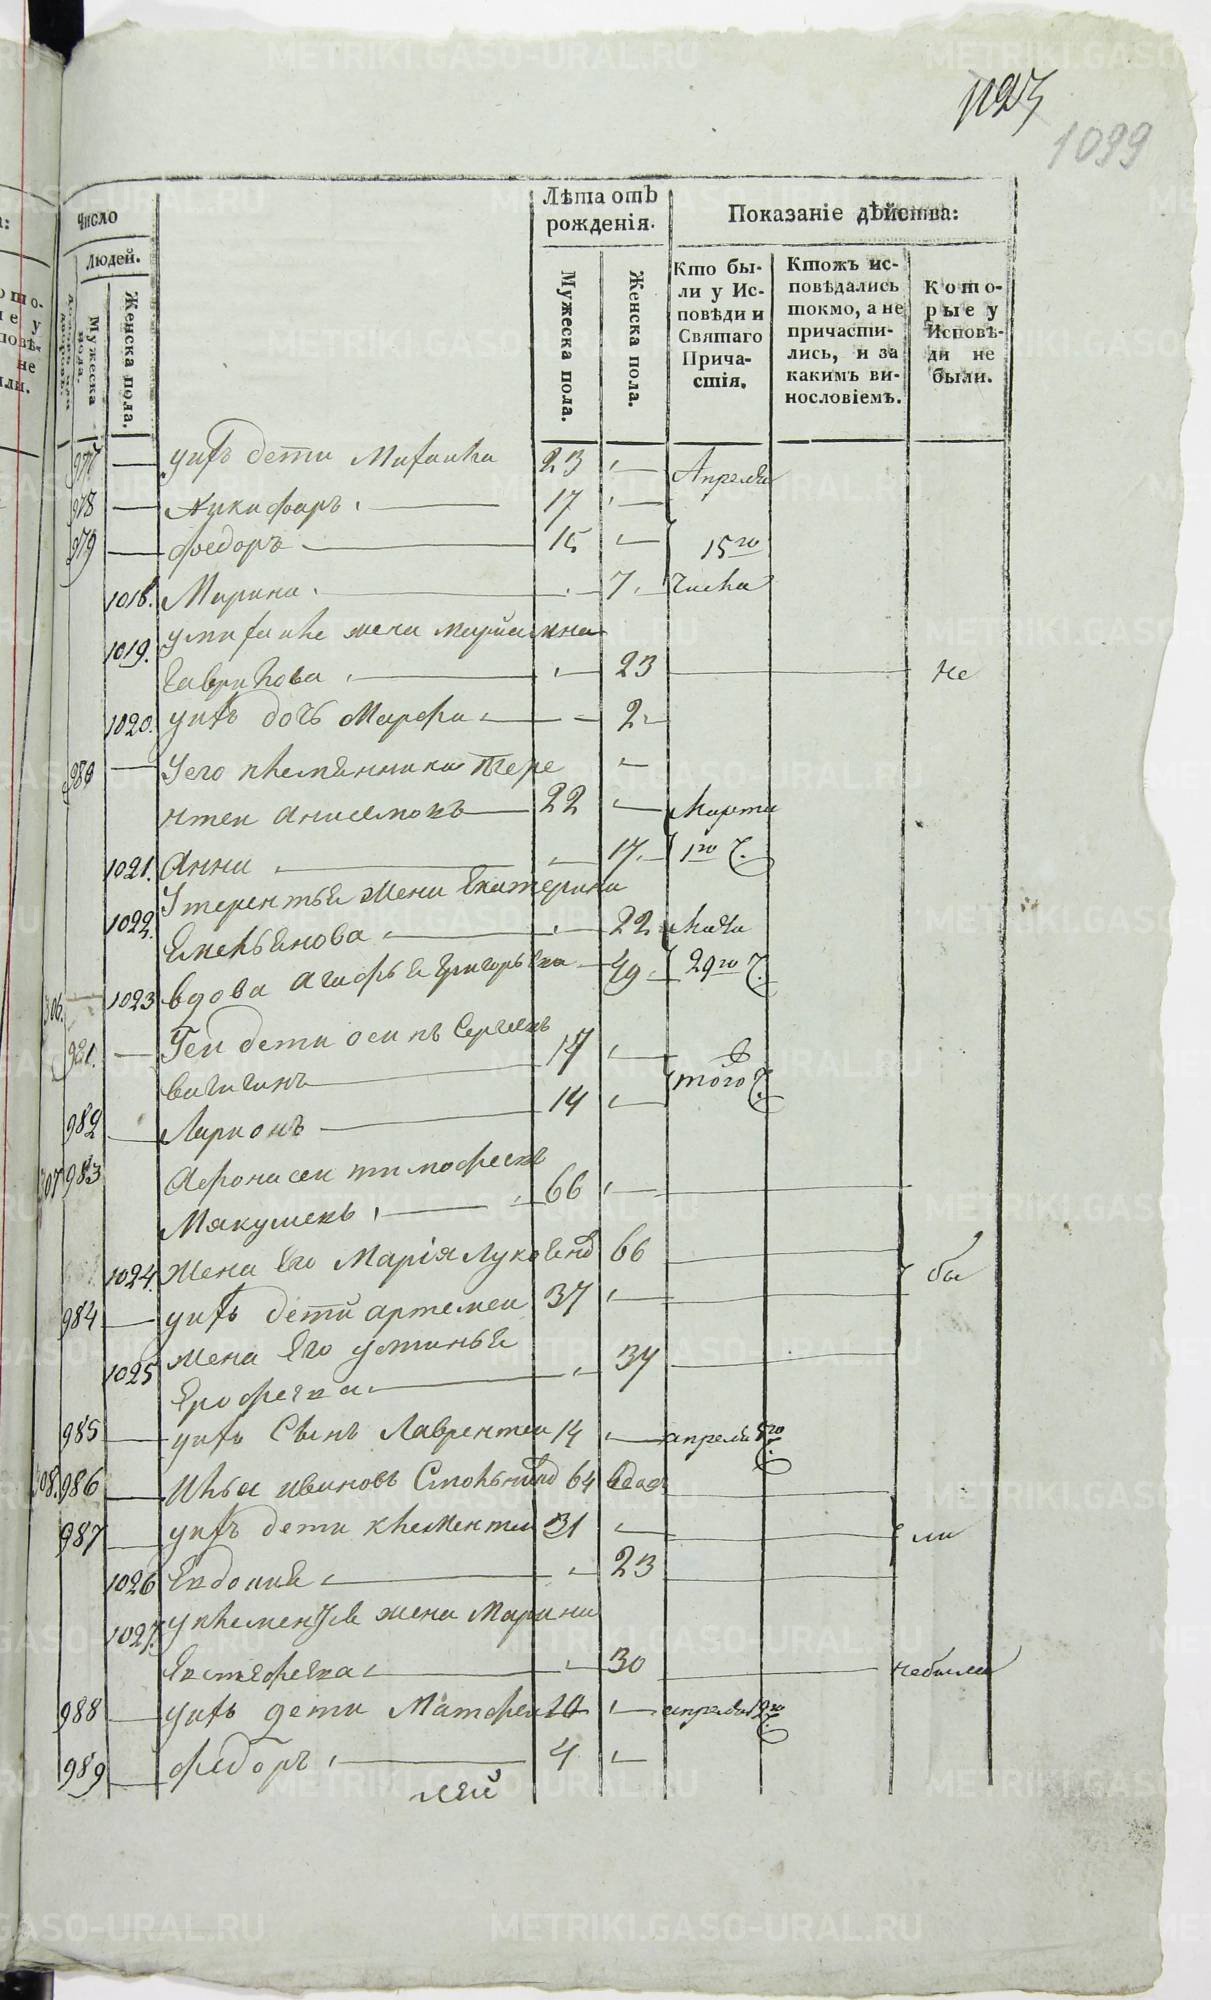 1099
Число
Людей.
Мужеска пола.
Женска пола.
Лѣта отъ рожденія.
Мужеска пола.
Женска пола.
Показаніе дѣйства:
Кто бы-
ли у Ис-
повѣди и
Святаго
Прича-
стія.
Ктожъ ис-
повѣдались
токмо, а не
причасти-
лись, и за
какимъ ви-
нословіемъ.
Кото-
рые у
Исповѣ-
ди не
были.
977 — уихъ дети Михаила 23 — Апреля
978 — Никифаръ 17 —
979 — Федоръ 15 — 15го
1018. Марина 7. числа
1019. умихаиле жена мариамна
Гаврилова 23 не
1020. уихъ дочь Марфа 2
980 — Уего племянники Тере
нтеи анисимовъ 22 — Марта
1021. Анна 17. 1го ч.
Утерентья жена Екатерина
1022. Емельянова 22 мая
306. 1023 вдова Агафья Григорьева 49 29го ч.
981. — Геи дети осипъ Сергѣевъ
Вагигинъ 17 — того ч.
982 — Ларионъ 14 —
307 983 Афонасеи тимофеевъ
Мякушевъ 66 —
1024. Жена Его Марія Луковна 66 бы
984 — уихъ дети артемеи 37 —
1025 жена Его устинья
Ерофеева 34
985 — уихъ Сынъ Лаврентеи 14 — апреля 8го ч.
308. 986 — Илья ивановъ 64 вдов
987 — уихъ дети клементеи 31 — ли
1026 Евдокия 23
1027. уклементья жена Марина
Евстефеева 30 небыла
988 — уихъ дети Матфеи 10 — апреля 19го ч.
989 — федоръ 4 —
лей
METRIKI.GASO-URAL.RU